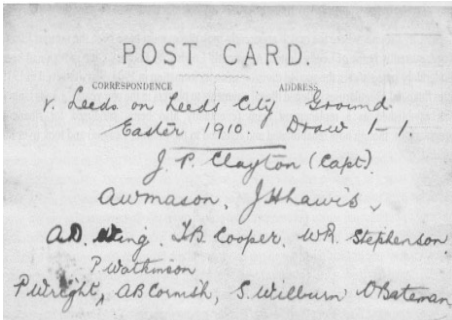 POST CARD.
CORRESPONDENCE ADDRESS
v. Leeds on Leeds City Ground.
Easter 1910. Draw 1-1.
J. P. Clayton (Capt).
A W Mason, J H
A.D. T.B. Cooper. W.R. Stephenson
P Watkinson
P Wright, A B Cornish, S. Wilburn O Bateman